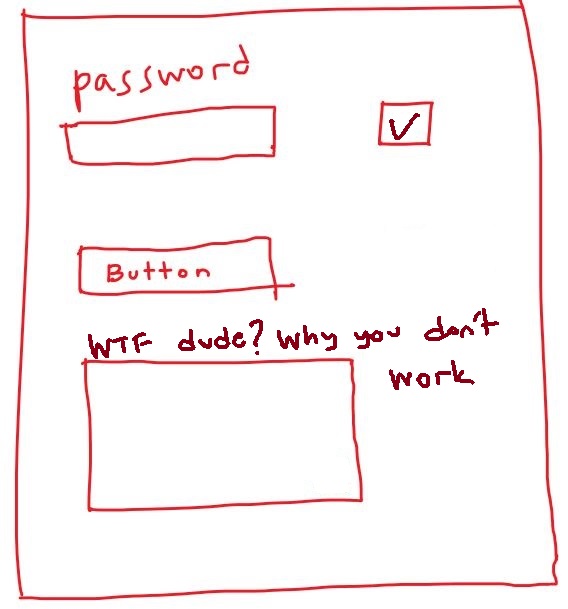 password
Button
WTF dude? Why you don't
work